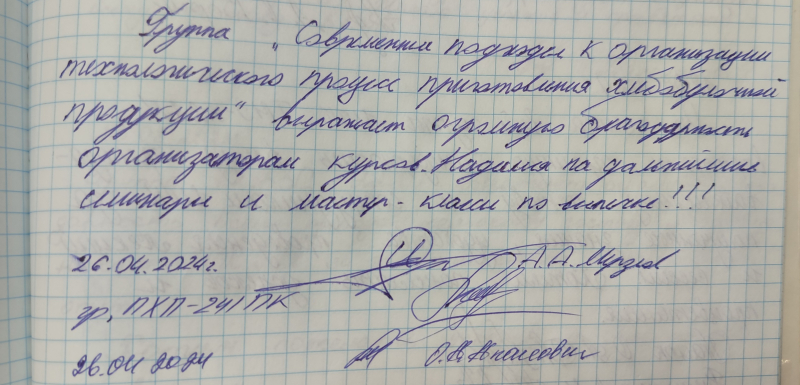 Группа „Современные подходы к организации
технологического процесс приготовления хлебобулочной
продукции" выражает огромную благодарность
организаторам курсов. Надеемся на дальнейшие
семинары и мастер-классы по выпечке!!!
26.04.2024г. А.А.
гр. ПХП-241ПК
26.04 2024